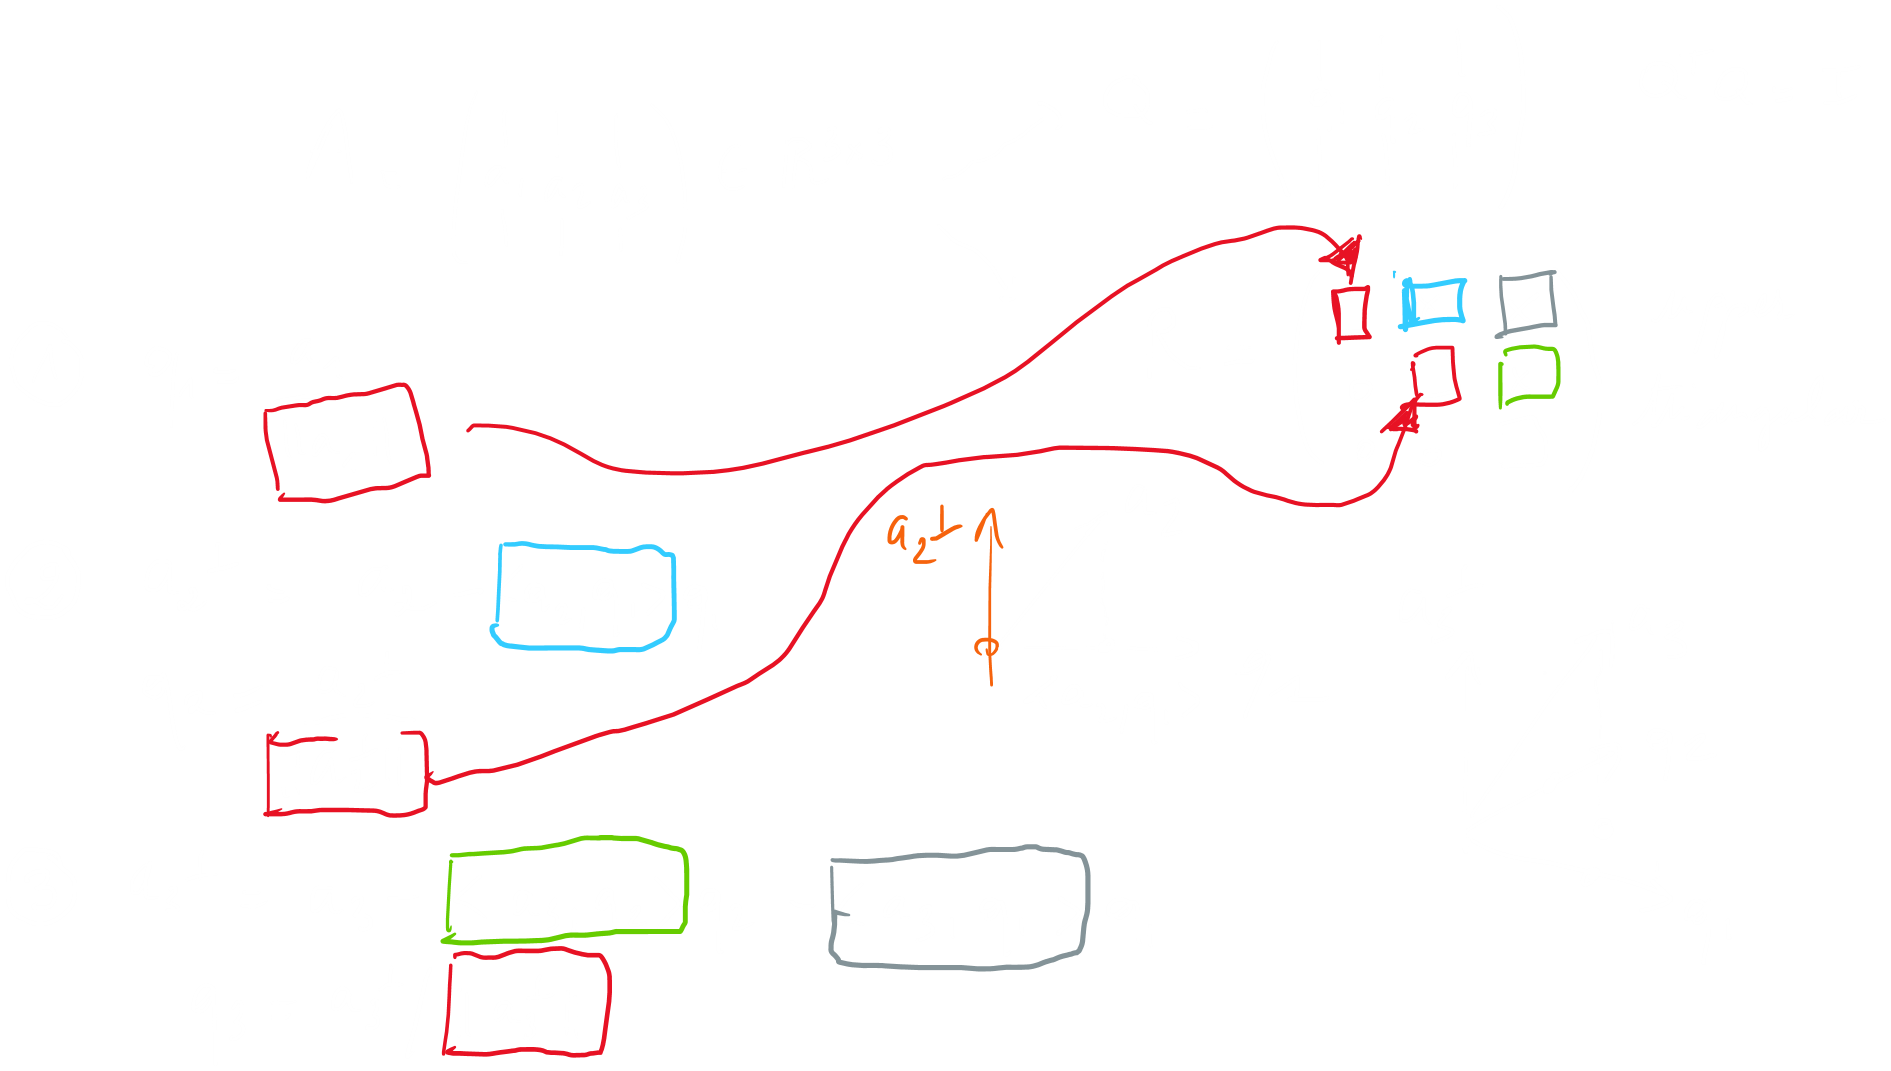 a₂⊥